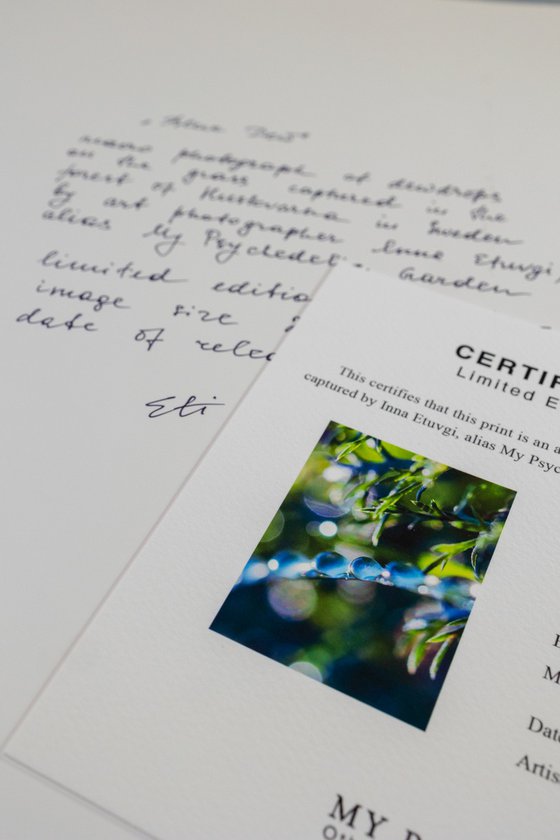 macro photograph of dewdrops
on the grass captured in the
forest of Huskvarna in Sweden
by art photographer Inna Etuvgi
alias My Psychedelic Garden
limited editio
image size
date of relea
Eti
CERTIF
Limited E
This certifies that this print is an a
captured by Inna Etuvgi, alias My Psyc
Date
Artis
MY